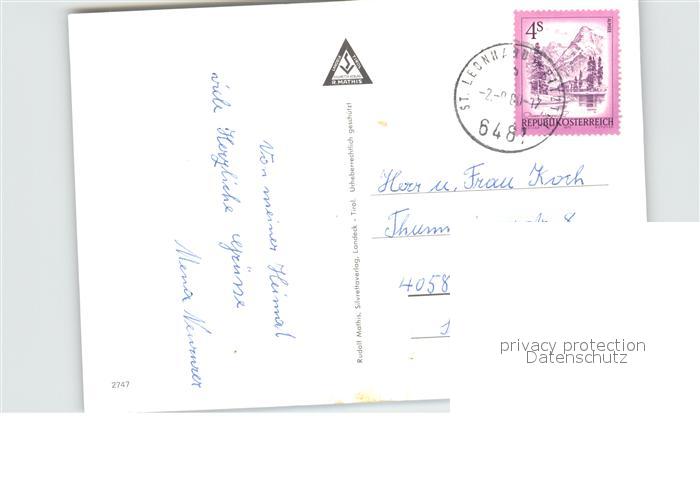 Von meiner Heimat
viele Herzliche Grüsse
R. MATHIS
Rudolf Mathis, Silvrettaverlag, Landeck - Tirol. Urheberrechtlich geschützt
2747
4S
REPUBLIK ÖSTERREICH
ST. LEONHARD
648
Herr u. Frau Koch
4058
privacy protection
Datenschutz